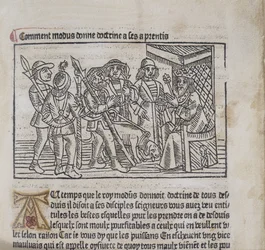 Comment modus donne doctrine a ses aprentis
U temps que le roy modus donnoit doctrine de tous des
duis il disoit a ses disciples seigneurs vous avez veu en ti
tules les bestes esquelles pour les prendre on a de
lesquelz sont moult prouffitables a ceulx qui en veullent
ser selon raison Car ie vous dy que les puissans
qui est appelle de quoy tous maulx viennent et les